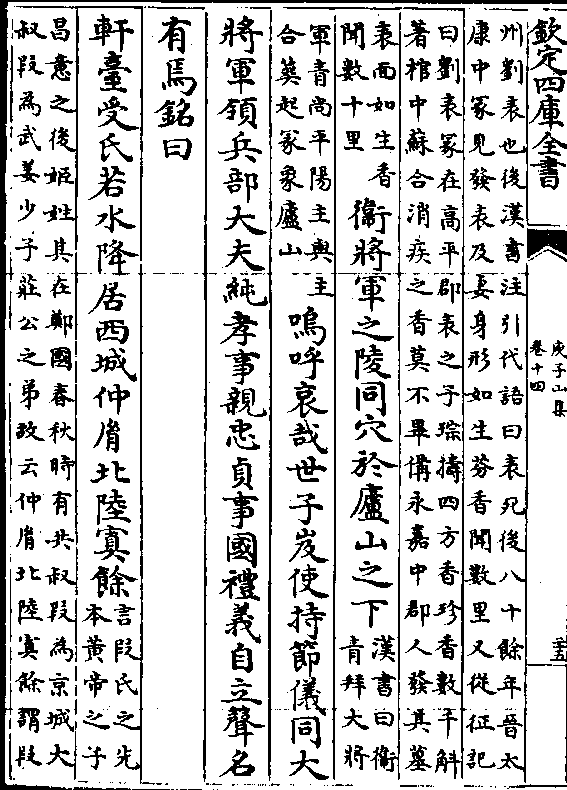 欽定四庫全書
庾子山集
卷十四
三十五
州劉表也後漢書注引代語曰表死後八十餘年晉太
康中冢見發表及妻身形如生芬香聞數里又從征記
曰劉表冢在高平郡表之子琮擣四方香珍香數千斛
著棺中蘇合消疾之香莫不畢備永嘉中郡人發其墓
表面如生香
聞數十里
衞將軍之陵同穴於廬山之下
漢書曰衞
青拜大將
軍青尚平陽主與主
合葬起冢象廬山
嗚呼哀哉世子岌使持節儀同大
將軍領兵部大夫純孝事親忠貞事國禮義自立聲名
有焉銘曰
軒臺受氏若水降居西城仲胤北陸寘餘
言段氏之先
本黃帝之子
昌意之後姬姓其在鄭國春秋時有共叔段為京城大
叔段為武姜少子莊公之弟故云仲胤北陸寘餘謂段